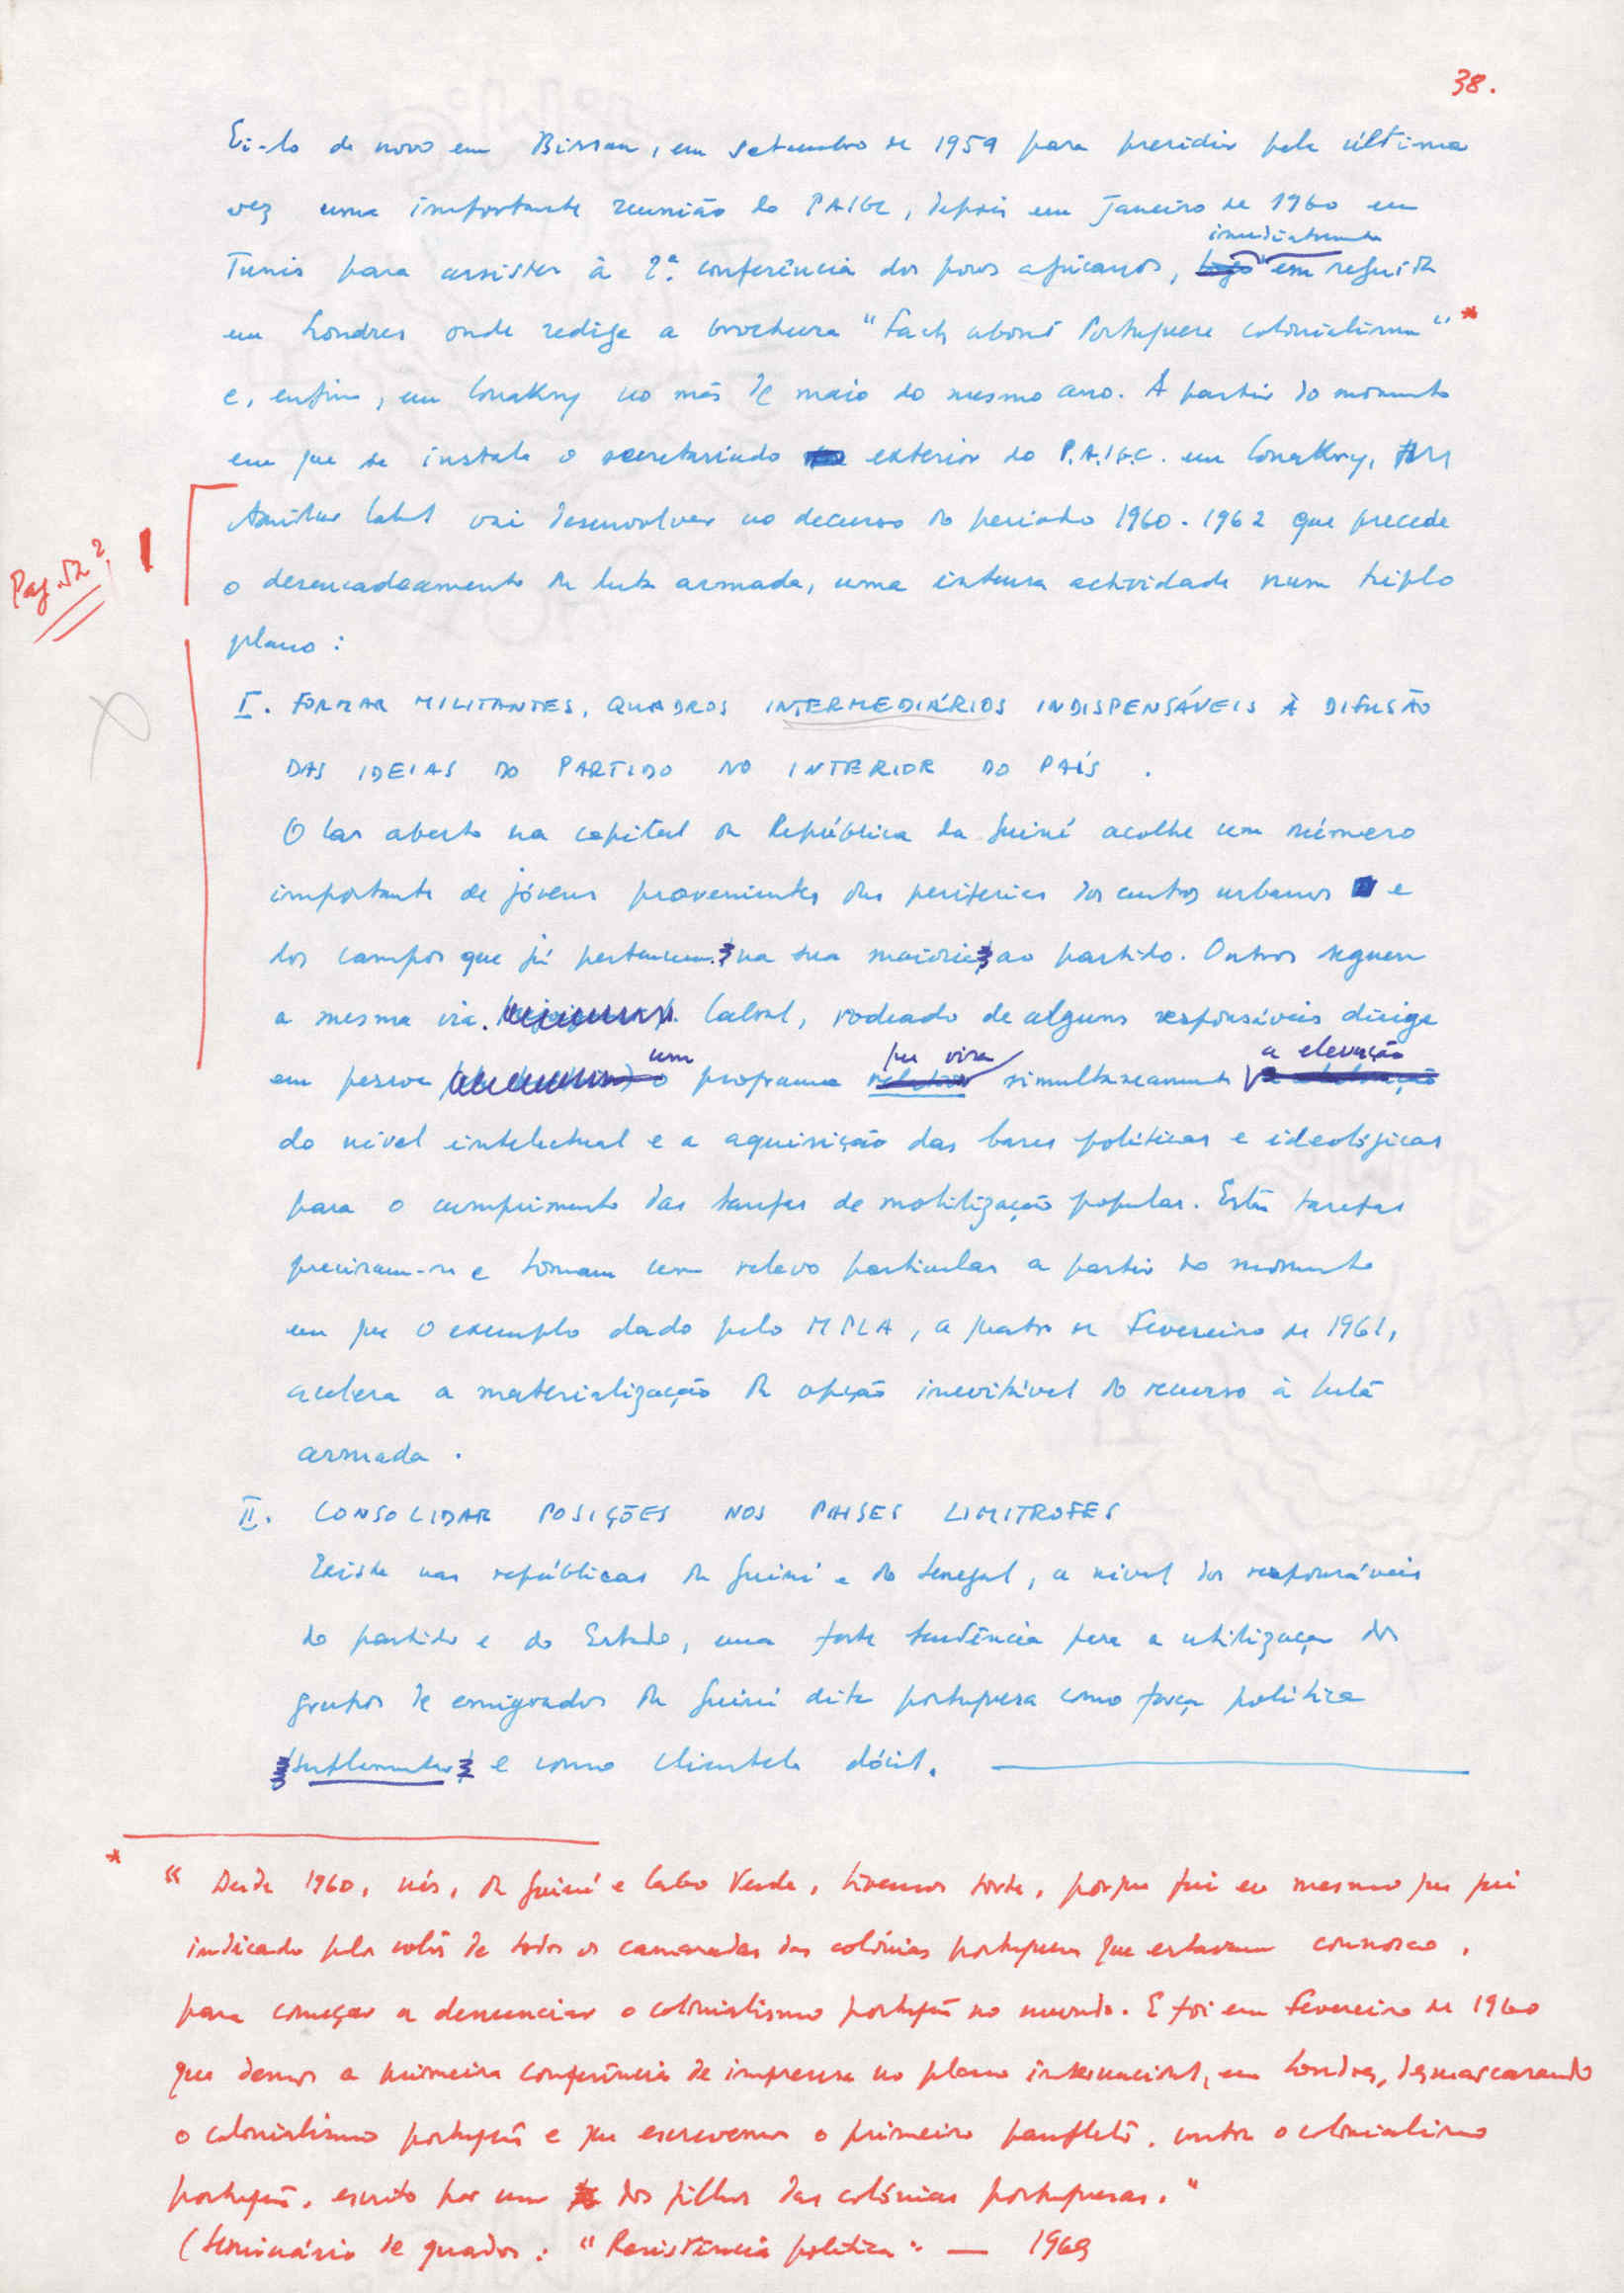 38.
Ei-lo de novo em Bissau, em setembro de 1959 para presidir pela última
vez uma importante reunião do PAIGC, depois em Janeiro de 1960 em
imediatamente
Tunis para assistir à 2ª conferência dos povos africanos, logo em seguida
em Londres onde redige a brochura "Facts about Portuguese colonialism" *
e, enfim, em Conakry no mês de maio do mesmo ano. A partir do momento
em que se instala o secretariado exterior do P.A.I.G.C. em Conakry,
Amílcar Cabral vai desenvolver no decurso do período 1960-1962 que precede
Pag. 52?
o desencadeamento da luta armada, uma intensa actividade num triplo
plano :
I. FORMAR MILITANTES, QUADROS INTERMEDIÁRIOS INDISPENSÁVEIS À DIFUSÃO
DAS IDEIAS DO PARTIDO NO INTERIOR DO PAÍS .
O lar aberto na capital da República da Guiné acolhe um número
importante de jóvens provenientes das periferias dos centros urbanos e
dos campos que já pertencem na sua maioria ao partido. Outros seguem
a mesma via. Cabral, rodeado de alguns responsáveis dirige
um que visa a elevação
em pessoa o programa relativo simultaneamente
do nível intelectual e a aquisição das bases políticas e ideológicas
para o cumprimento das tarefas de mobilização popular. Estas tarefas
precisam-se e tomam um relevo particular a partir do momento
em que o exemplo dado pelo MPLA, a quatro de Fevereiro de 1961,
acelera a materialização da opção inevitável do recurso à luta
armada .
II. CONSOLIDAR POSIÇÕES NOS PAISES LIMITROFES
Existe nas repúblicas da Guiné e do Senegal, a nível dos responsáveis
do partido e do Estado, uma forte tendência para a utilização dos
grupos de emigrados da Guiné dita portuguesa como força política
suplementar e como clientela dócil.
* "Desde 1960, nós, da Guiné e Cabo Verde, tivemos sorte, porque fui eu mesmo que fui
indicado pelos votos de todos os camaradas das colónias portuguesas que estavam connosco,
para começar a denunciar o colonialismo português no mundo. E foi em Fevereiro de 1960
que demos a primeira conferência de imprensa no plano internacional, em Londres, desmascarando
o colonialismo português e que escrevemos o primeiro panfleto, contra o colonialismo
português, escrito por um dos filhos das colónias portuguesas."
(Seminário de quadros: "Resistência política" — 1969